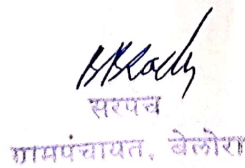 सरपंच
ग्रामपंचायत, वेलोरा